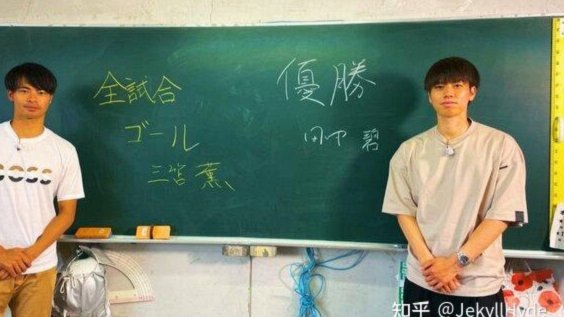 全試合
ゴール
三笘薫
優勝
田中 碧
BOSS
知乎 @JekyllHyde